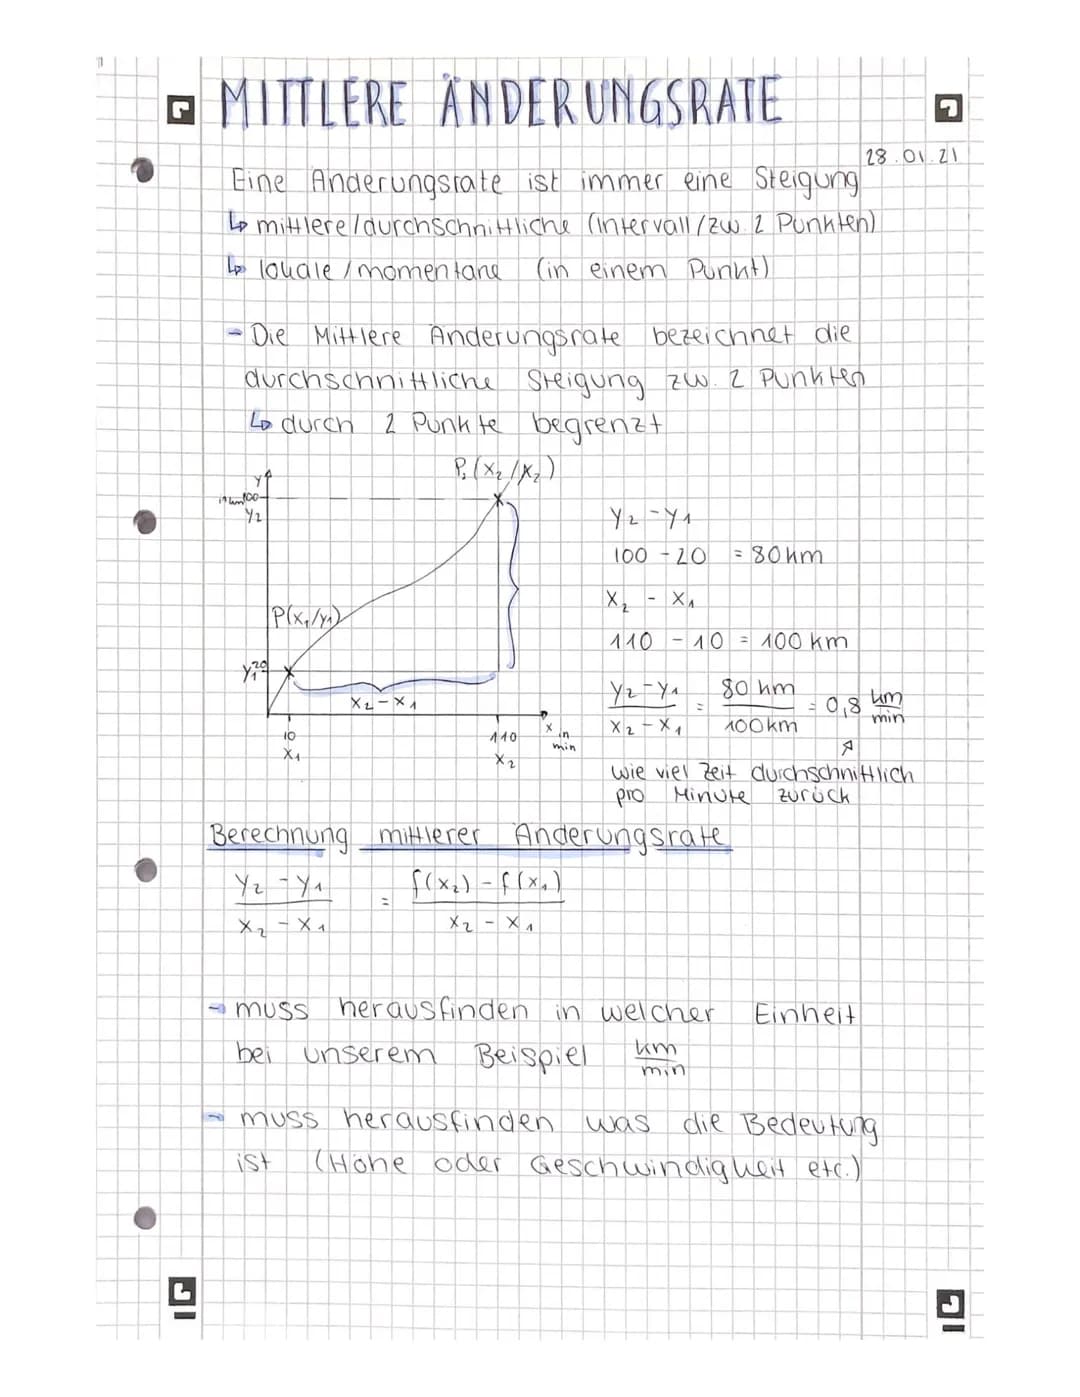 MITTLERE ÄNDERUNGSRATE
28.01.21
Eine Änderungsrate ist immer eine Steigung
↳ mittlere/durchschnittliche (Intervall/zw. 2 Punkten)
↳ lokale/momentane (in einem Punkt)
- Die Mittlere Änderungsrate bezeichnet die
durchschnittliche Steigung zw. 2 Punkten
↳ durch 2 Punkte begrenzt
P₂(x₂/x₂)
y
in km 100
y₂
P(x₁/y₁)
y₁ 20
x₂-x₁
10
x₁
110
x₂
x in
min
y₂-y₁
100 - 20 = 80km
x₂ - x₁
110 - 10 = 100 km
y₂-y₁ / x₂-x₁ = 80 km / 100km = 0,8 km/min
wie viel Zeit durchschnittlich
pro Minute zurück
Berechnung mittlerer Änderungsrate
y₂-y₁ / x₂-x₁ = f(x₂)-f(x₁) / x₂-x₁
- muss herausfinden in welcher Einheit
bei unserem Beispiel km/min
- muss herausfinden was die Bedeutung
ist (Höhe oder Geschwindigkeit etc.)